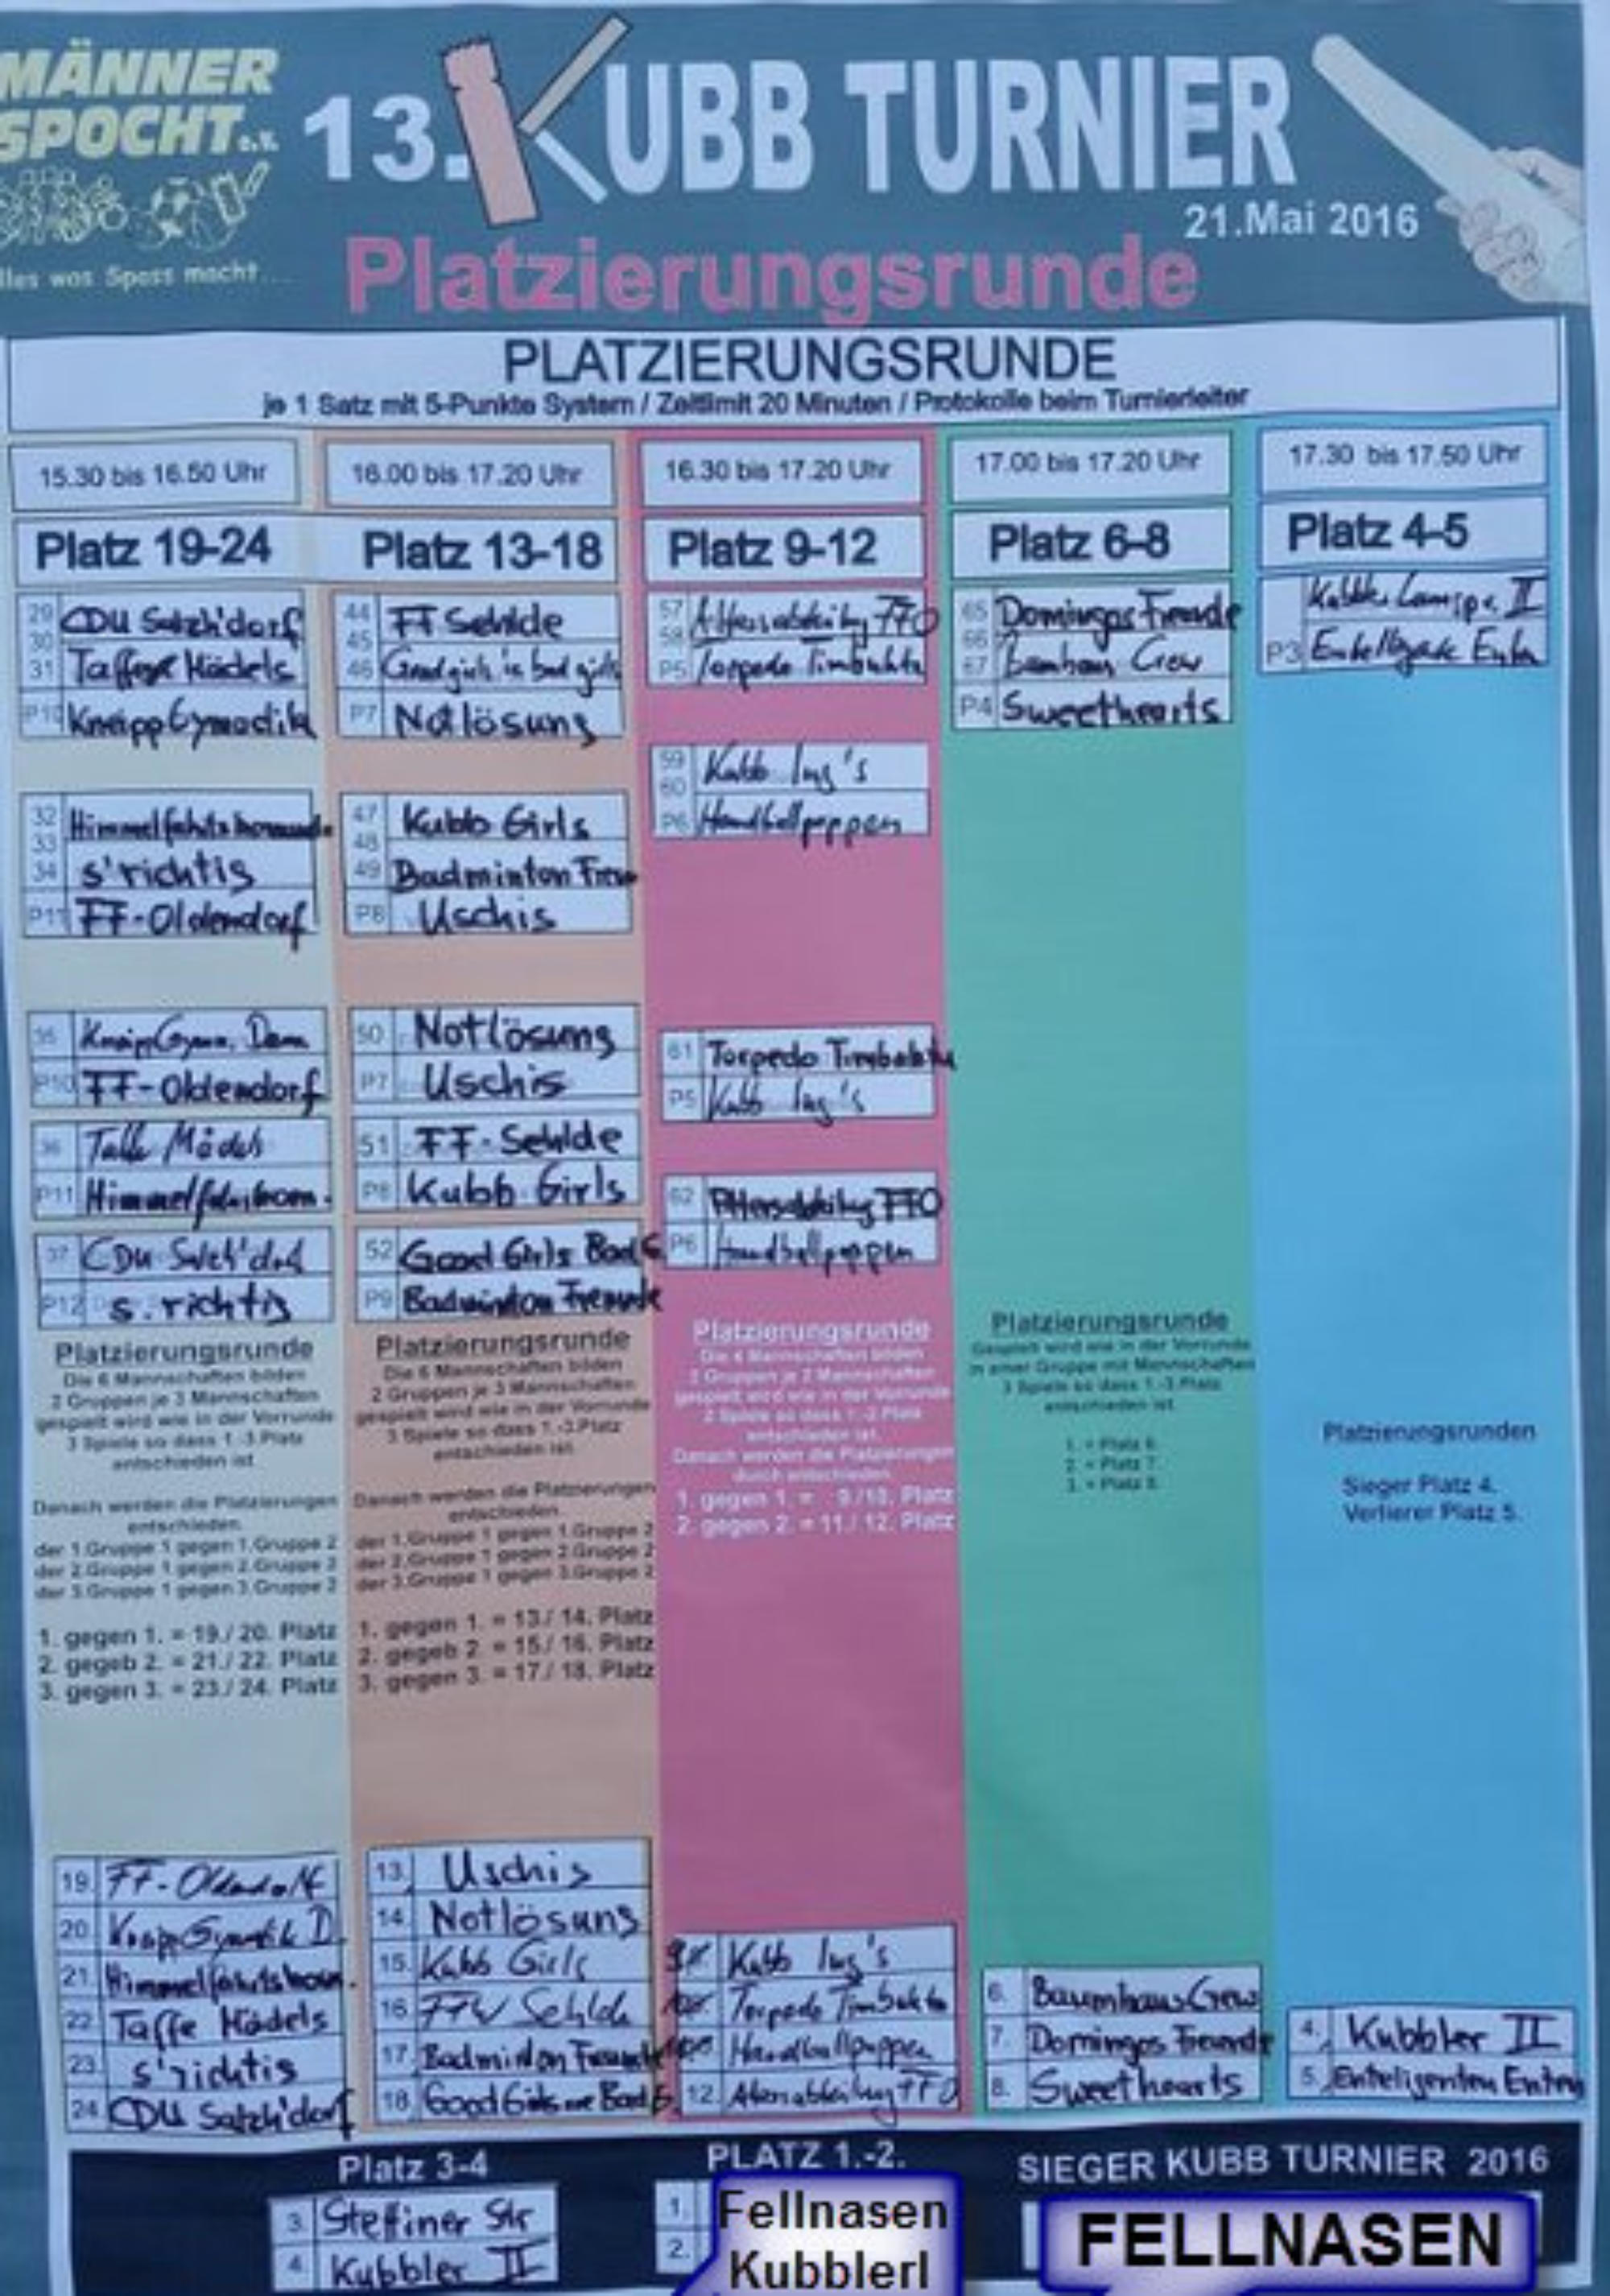 MÄNNER
SPOCHT e.V.
lles was Spass macht...
13. KUBB TURNIER
21.Mai 2016
Platzierungsrunde
PLATZIERUNGSRUNDE
je 1 Satz mit 5-Punkte System / Zeitlimit 20 Minuten / Protokolle beim Turnierleiter
15.30 bis 16.50 Uhr
Platz 19-24
29 CDU Salzh'dorf
30
31 Taffe Mädels
P10 Kneipp Gymnastik
32 Himmelfahrts
33
34 s'richtis
P11 FF-Oldendorf
35 Kneipp Gymn. Dam
P10 FF-Oldendorf
36 Taffe Mädels
P11 Himmelfahrtskom.
37 CDU Salzh'dorf
P12 s.richtis
Platzierungsrunde
Die 6 Mannschaften bilden
2 Gruppen je 3 Mannschaften
gespielt wird wie in der Vorrunde
3 Spiele so dass 1.-3.Platz
entschieden ist
Danach werden die Platzierungen
entschieden.
der 1.Gruppe 1 gegen 1.Gruppe 2
der 2.Gruppe 1 gegen 2.Gruppe 2
der 3.Gruppe 1 gegen 3.Gruppe 2
1. gegen 1. = 19./ 20. Platz
2. gegeb 2. = 21./ 22. Platz
3. gegen 3. = 23./ 24. Platz
19. FF-Oldendorf
20. Kneipp Gymnastik D.
21. Himmelfahrtskom.
22. Taffe Mädels
23. s'richtis
24. CDU Salzh'dorf
16.00 bis 17.20 Uhr
Platz 13-18
44 FF Sehlde
45
46 Good girls is bad girls
P7 Notlösung
47 Kubb Girls
48
49 Badminton Freu
P8 Uschis
50 Notlösung
P7 Uschis
51 FF-Sehlde
P8 Kubb Girls
52 Good Girls Bad G
P9 Badminton Freunde
Platzierungsrunde
Die 6 Mannschaften bilden
2 Gruppen je 3 Mannschaften
gespielt wird wie in der Vorrunde
3 Spiele so dass 1.-3.Platz
entschieden ist
Danach werden die Platzierungen
entschieden.
der 1.Gruppe 1 gegen 1.Gruppe 2
der 2.Gruppe 1 gegen 2.Gruppe 2
der 3.Gruppe 1 gegen 3.Gruppe 2
1. gegen 1. = 13./ 14. Platz
2. gegeb 2. = 15./ 16. Platz
3. gegen 3. = 17./ 18. Platz
13. Uschis
14. Notlösung
15. Kubb Girls
16. FFW Sehlde
17. Badminton Freunde
18. Good Girls are Bad G.
16.30 bis 17.20 Uhr
Platz 9-12
57 Altersabteilung FFO
58
P5 Torpedo Timbuktu
59 Kubb Ing's
60
P6 Handballpuppen
61 Torpedo Timbuktu
P5 Kubb Ing's
62 Altersabteilung FFO
P6 Handballpuppen
Platzierungsrunde
Die 4 Mannschaften bilden
2 Gruppen je 2 Mannschaften
gespielt wird wie in der Vorrunde
2 Spiele so dass 1.-2.Platz
entschieden ist.
Danach werden die Platzierungen
durch entschieden
1. gegen 1. = 9./10. Platz
2. gegen 2. = 11./ 12. Platz
Kubb Ing's
Torpedo Timbuktu
Handballpuppen
12. Altersabteilung FFO
17.00 bis 17.20 Uhr
Platz 6-8
65 Domingos Freunde
66
67 Baumhaus Crew
P4 Sweethearts
Platzierungsrunde
Gespielt wird wie in der Vorrunde
in einer Gruppe mit Mannschaften
3 Spiele so dass 1.-3.Platz
entschieden ist
1. = Platz 6.
2. = Platz 7.
3. = Platz 8.
6. Baumhaus Crew
7. Domingos Freunde
8. Sweethearts
17.30 bis 17.50 Uhr
Platz 4-5
II
P3 Enten
Platzierungsrunden
Sieger Platz 4.
Verlierer Platz 5.
4. Kubbler II
5. Enteligenten Enten
Platz 3-4
3. Stettiner Str
4. Kubbler II
PLATZ 1.-2.
1. Fellnasen
2. KubblerI
SIEGER KUBB TURNIER 2016
FELLNASEN